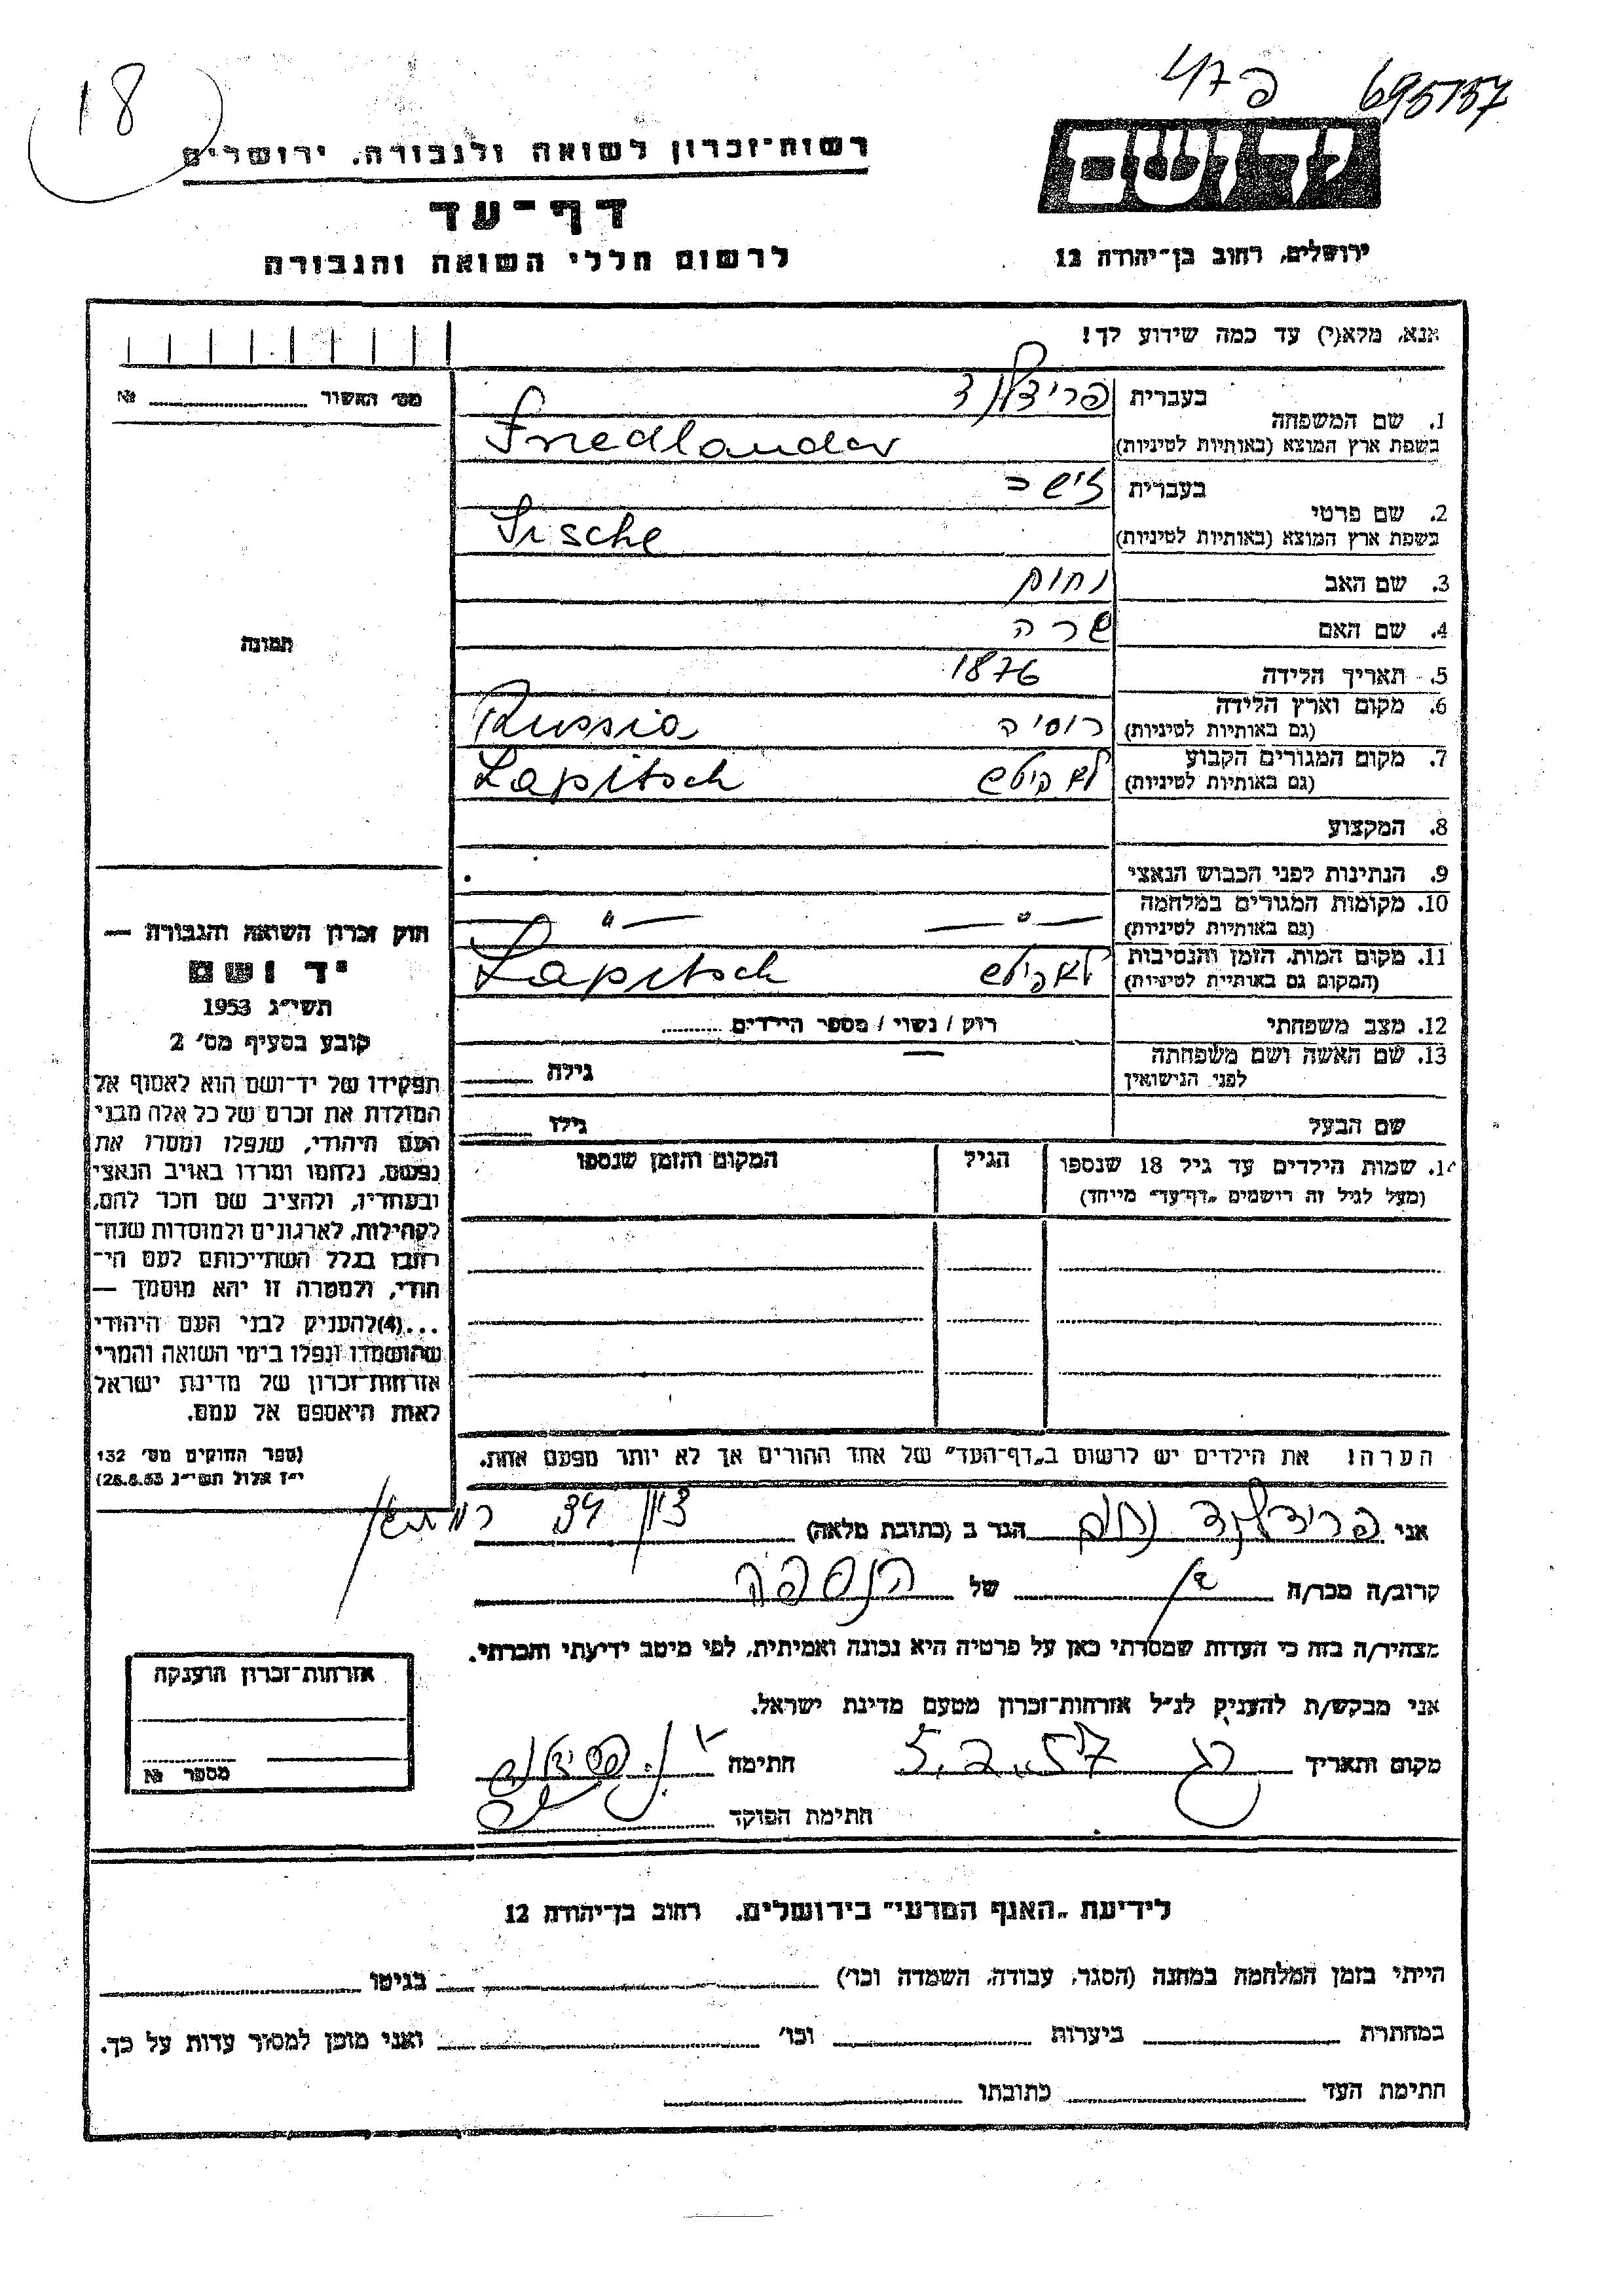 18
פ 47
695157
רשות-זכרון לשואה ולגבורה, ירושלים
דף-עד
לרשום חללי השואה והגבורה
יד ושם
ירושלים, רחוב בן-יהודה 12
אנא, מלא(י) עד כמה שידוע לך!
מס' האשור № 
1. שם המשפחה
בעברית פרידלנד
בשפת ארץ המוצא (באותיות לטיניות) Friedlander
2. שם פרטי
בעברית זישה
בשפת ארץ המוצא (באותיות לטיניות) Sische
3. שם האב נחום
4. שם האם שרה
5. תאריך הלידה 1876
6. מקום וארץ הלידה (גם באותיות לטיניות) רוסיה Russia
7. מקום המגורים הקבוע (גם באותיות לטיניות) לאפיטש Lapitsch
8. המקצוע
9. הנתינות לפני הכבוש הנאצי
10. מקומות המגורים במלחמה (גם באותיות לטיניות) — " — — " —
11. מקום המות, הזמן והנסיבות (המקום גם באותיות לטיניות) לאפיטש Lapitsch
12. מצב משפחתי רווק / נשוי / מספר הילדים
13. שם האשה ושם משפחתה לפני הנישואין גילה
שם הבעל גילו
14. שמות הילדים עד גיל 18 שנספו
(מעל לגיל זה רושמים "דף-עד" מיוחד)
הגיל
המקום והזמן שנספו
תמונה
חוק זכרון השואה והגבורה —
יד ושם
תשי"ג 1953
קובע בסעיף מס' 2
תפקידו של יד-ושם הוא לאסוף אל
המולדת את זכרם של כל אלה מבני
העם היהודי, שנפלו ומסרו את
נפשם, נלחמו ומרדו באויב הנאצי
ובעוזריו, ולהציב שם וזכר להם,
לקהילות, לארגונים ולמוסדות שנח-
רבו בגלל השתייכותם לעם הי-
הודי, ולמטרה זו יהא מוסמך —
...(4) להעניק לבני העם היהודי
שהושמדו ונפלו בימי השואה והמרי
אזרחות-זכרון של מדינת ישראל
לאות היאספם אל עמם.
(ספר החוקים מס' 132
י"ז אלול תשי"ג 28.8.53)
הערה! את הילדים יש לרשום ב"דף-העד" של אחד ההורים אך לא יותר מפעם אחת.
אני פרידלנד נחום הגר ב (כתובת מלאה) 34
קרוב/ה מכר/ה בן של הנספה
מצהיר/ה בזה כי העדות שמסרתי כאן על פרטיה היא נכונה ואמיתית, לפי מיטב ידיעתי והכרתי.
אני מבקש/ת להעניק לנ"ל אזרחות-זכרון מטעם מדינת ישראל.
מקום ותאריך 5.2.57 חתימה
חתימת הפוקד
אזרחות-זכרון הוענקה
מספר №
לידיעת "האגף המדעי" בירושלים, רחוב בן-יהודה 12
הייתי בזמן המלחמה במחנה (הסגר, עבודה, השמדה וכו') בגיטו
במחתרת ביערות וכו' ואני מוכן למסור עדות על כך.
חתימת העד כתובתו